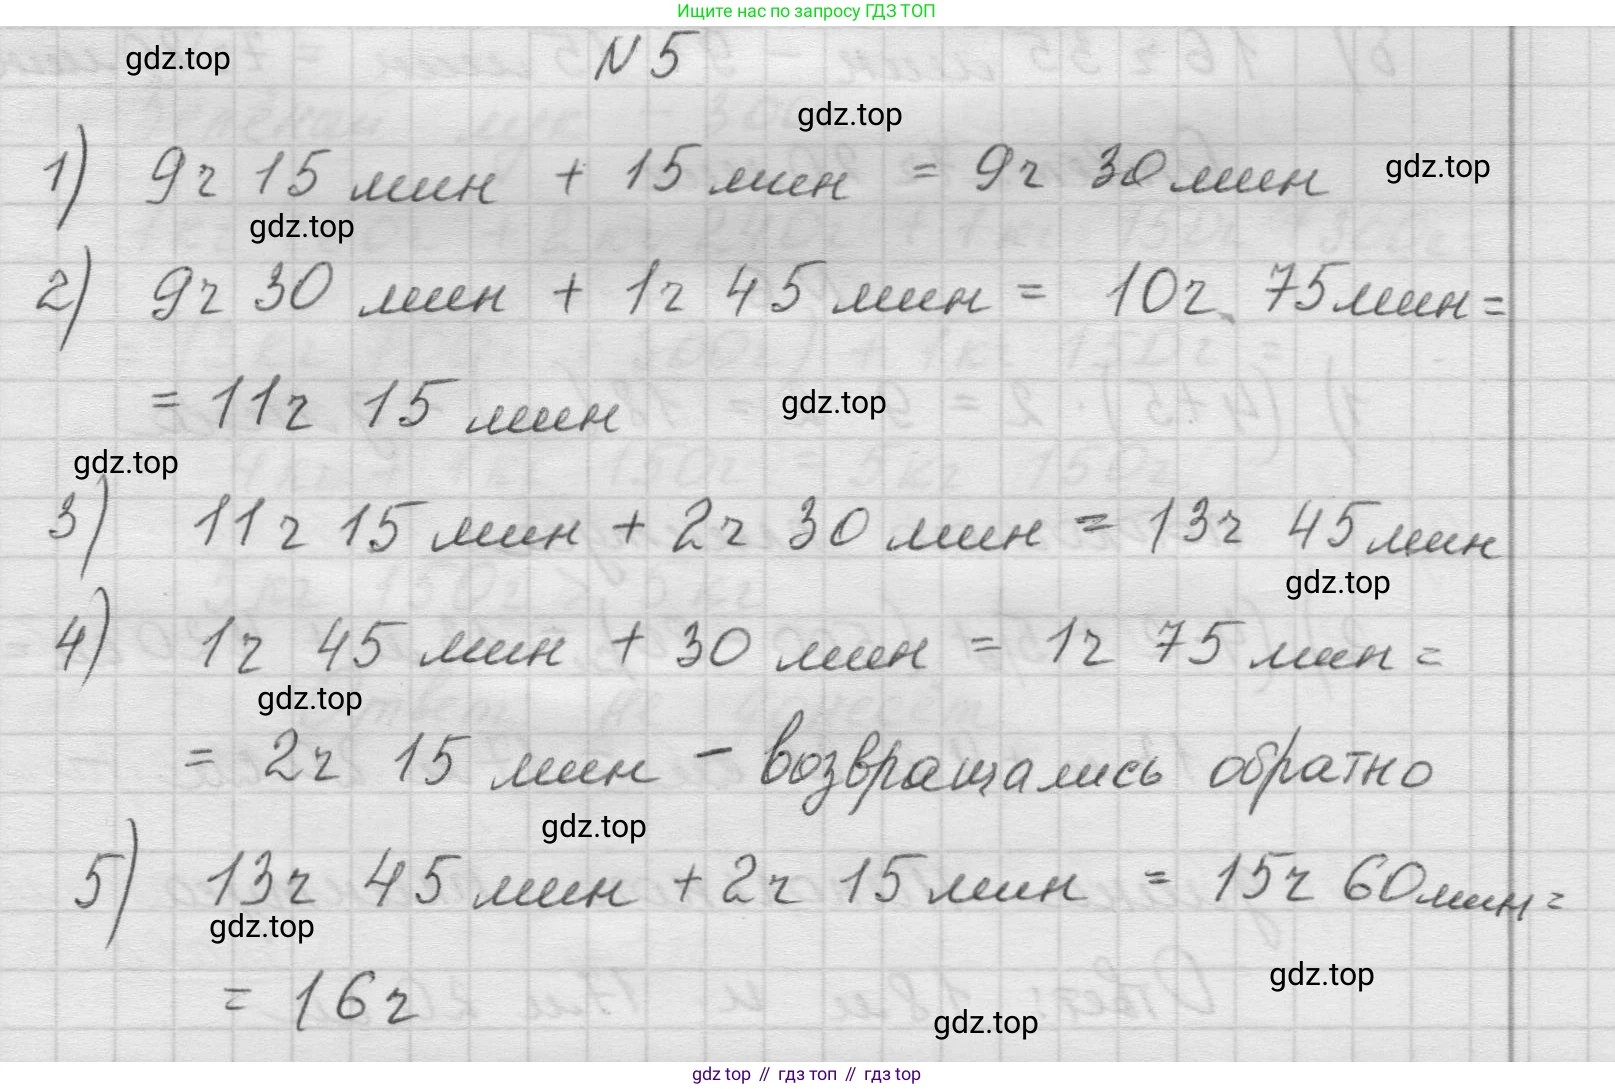 Ищите нас по запросу ГДЗ ТОП
gdz.top
N 5
gdz.top
1) 9ч 15 мин + 15 мин = 9ч 30 мин
gdz.top
gdz.top
2) 9ч 30 мин + 1ч 45 мин = 10ч 75 мин =
= 11ч 15 мин
gdz.top
gdz.top
3) 11ч 15 мин + 2ч 30 мин = 13ч 45 мин
gdz.top
4) 1ч 45 мин + 30 мин = 1ч 75 мин =
gdz.top
= 2ч 15 мин - возвращались обратно
gdz.top
5) 13ч 45 мин + 2ч 15 мин = 15ч 60 мин =
gdz.top
gdz.top
= 16ч
gdz.top
gdz top // гдз топ // гдз top